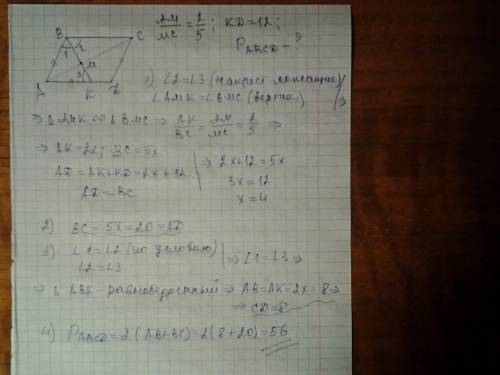 B C
1 2
M
3
A K D
AM/MC = 2/5 ; KD = 12 ;
P_ABCD - ?
1) ∠2 = ∠3 (накрест лежащие)
∠AMK = ∠BMC (вертик) ⇒
⇒ △AMK ∞ △BMC ⇒ AK/BC = AM/MC = 2/5 ⇒
⇒ AK = 2x; BC = 5x.
AD = AK + KD = 2x + 12
AD = BC
⇒ 2x + 12 = 5x
3x = 12
x = 4
2) BC = 5x = 20 = AD
3) ∠1 = ∠2 (по условию)
∠2 = ∠3
⇒ ∠1 = ∠3 ⇒
⇒ △ ABK - равнобедренный ⇒ AB = AK = 2x = 8 ⇒
⇒ CD = 8
4) P_ABCD = 2(AB + BC) = 2(8 + 20) = 56